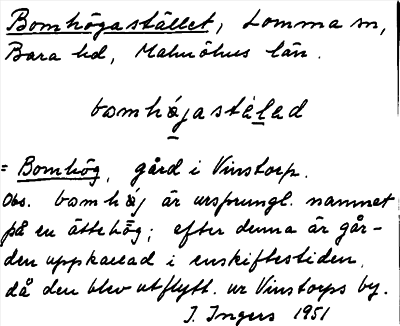 Bomhögastället, Lomma sn,
Bara hd, Malmöhus län.
bomhǫ́jastàlad
= Bomhög, gård i Vinstorp.
Obs. bomhǫ́j är ursprungl. namnet
på en ättehög; efter denna är går-
den uppkallad i enskiftestiden,
då den blev utflytt. ur Vinstorps by.
J. Ingers 1951